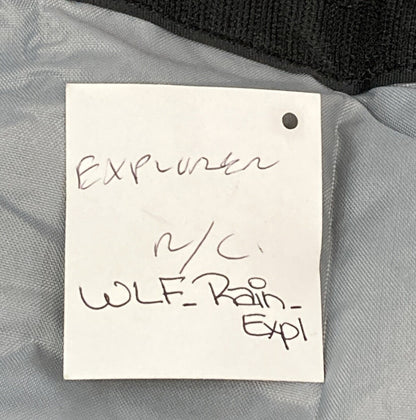 EXPLORER
N/C.
WLF_Rain_
Expl